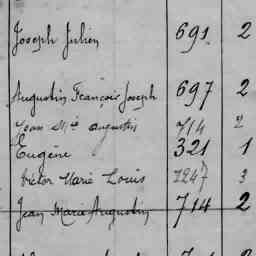 Joseph Julien 691 2
Augustin François Joseph 697 2
Jean Mie Augustin 714 2
Eugène 321 1
Victor Marie Louis 1247 3
Jean Marie Augustin 714 2